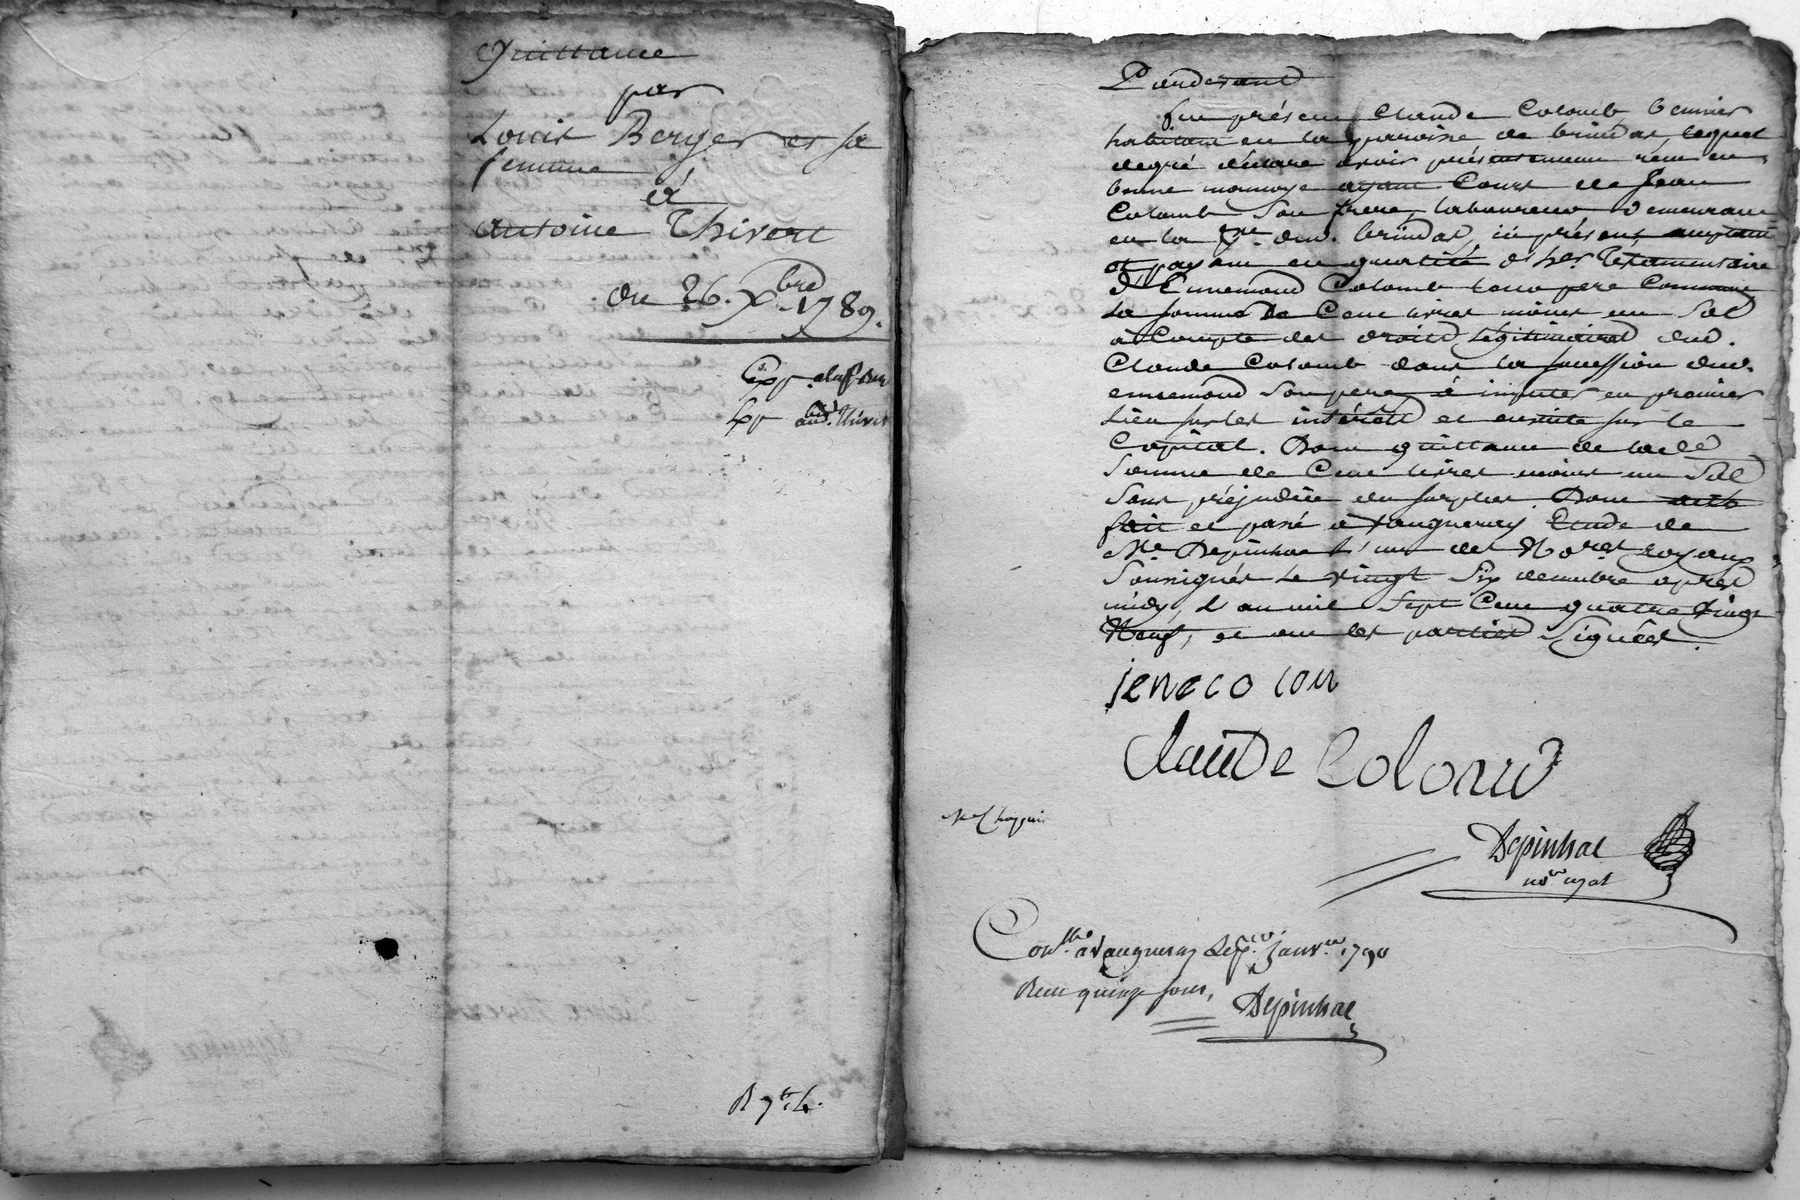 Quittance
par
Louis Berger et sa
femme
à
Antoine Thivert
du 26. Xbre 1789.
Exp.
Exp
R 7s: 4.
Pardevant
fut présent Claude Colomb
habitant en la paroisse de brindas, lequel
degré déclare avoir présentement reçu en
bonne monnoye ayant Cours de Jean
Colomb Son frere, laboureur demeurant
en la pse. dud. brindas, ici présent acceptant
et payant en qualité d'her. Testamentaire
d'Ennemond Colomb leur pere Commun
La somme De Cent livres moins un Sol
à Compte des droits légitimaires dud.
Claude Colomb dans la succession dud.
ennemond Son pere, à imputer en premier
Lieu sur les intérêts et ensuite sur le
Capital. Dont quittance de lade
Somme de Cent livres moins un Sol
Sans préjudice du surplus. Dont acte
fait et passé à Vaugneray Etude de
Me. Depinhac l'un des Nores. royaux
Soussignés Le vingt Six decembre après
midy, L'an mil Sept Cent quatre vingt
Neuf, et ont les parties Signées.
jeneco lon
Claude Colomb
Depinhac
nore. royal
Conllé. à Vaugneray Le janver. 1790
Reçu quinze sous, Depinhac